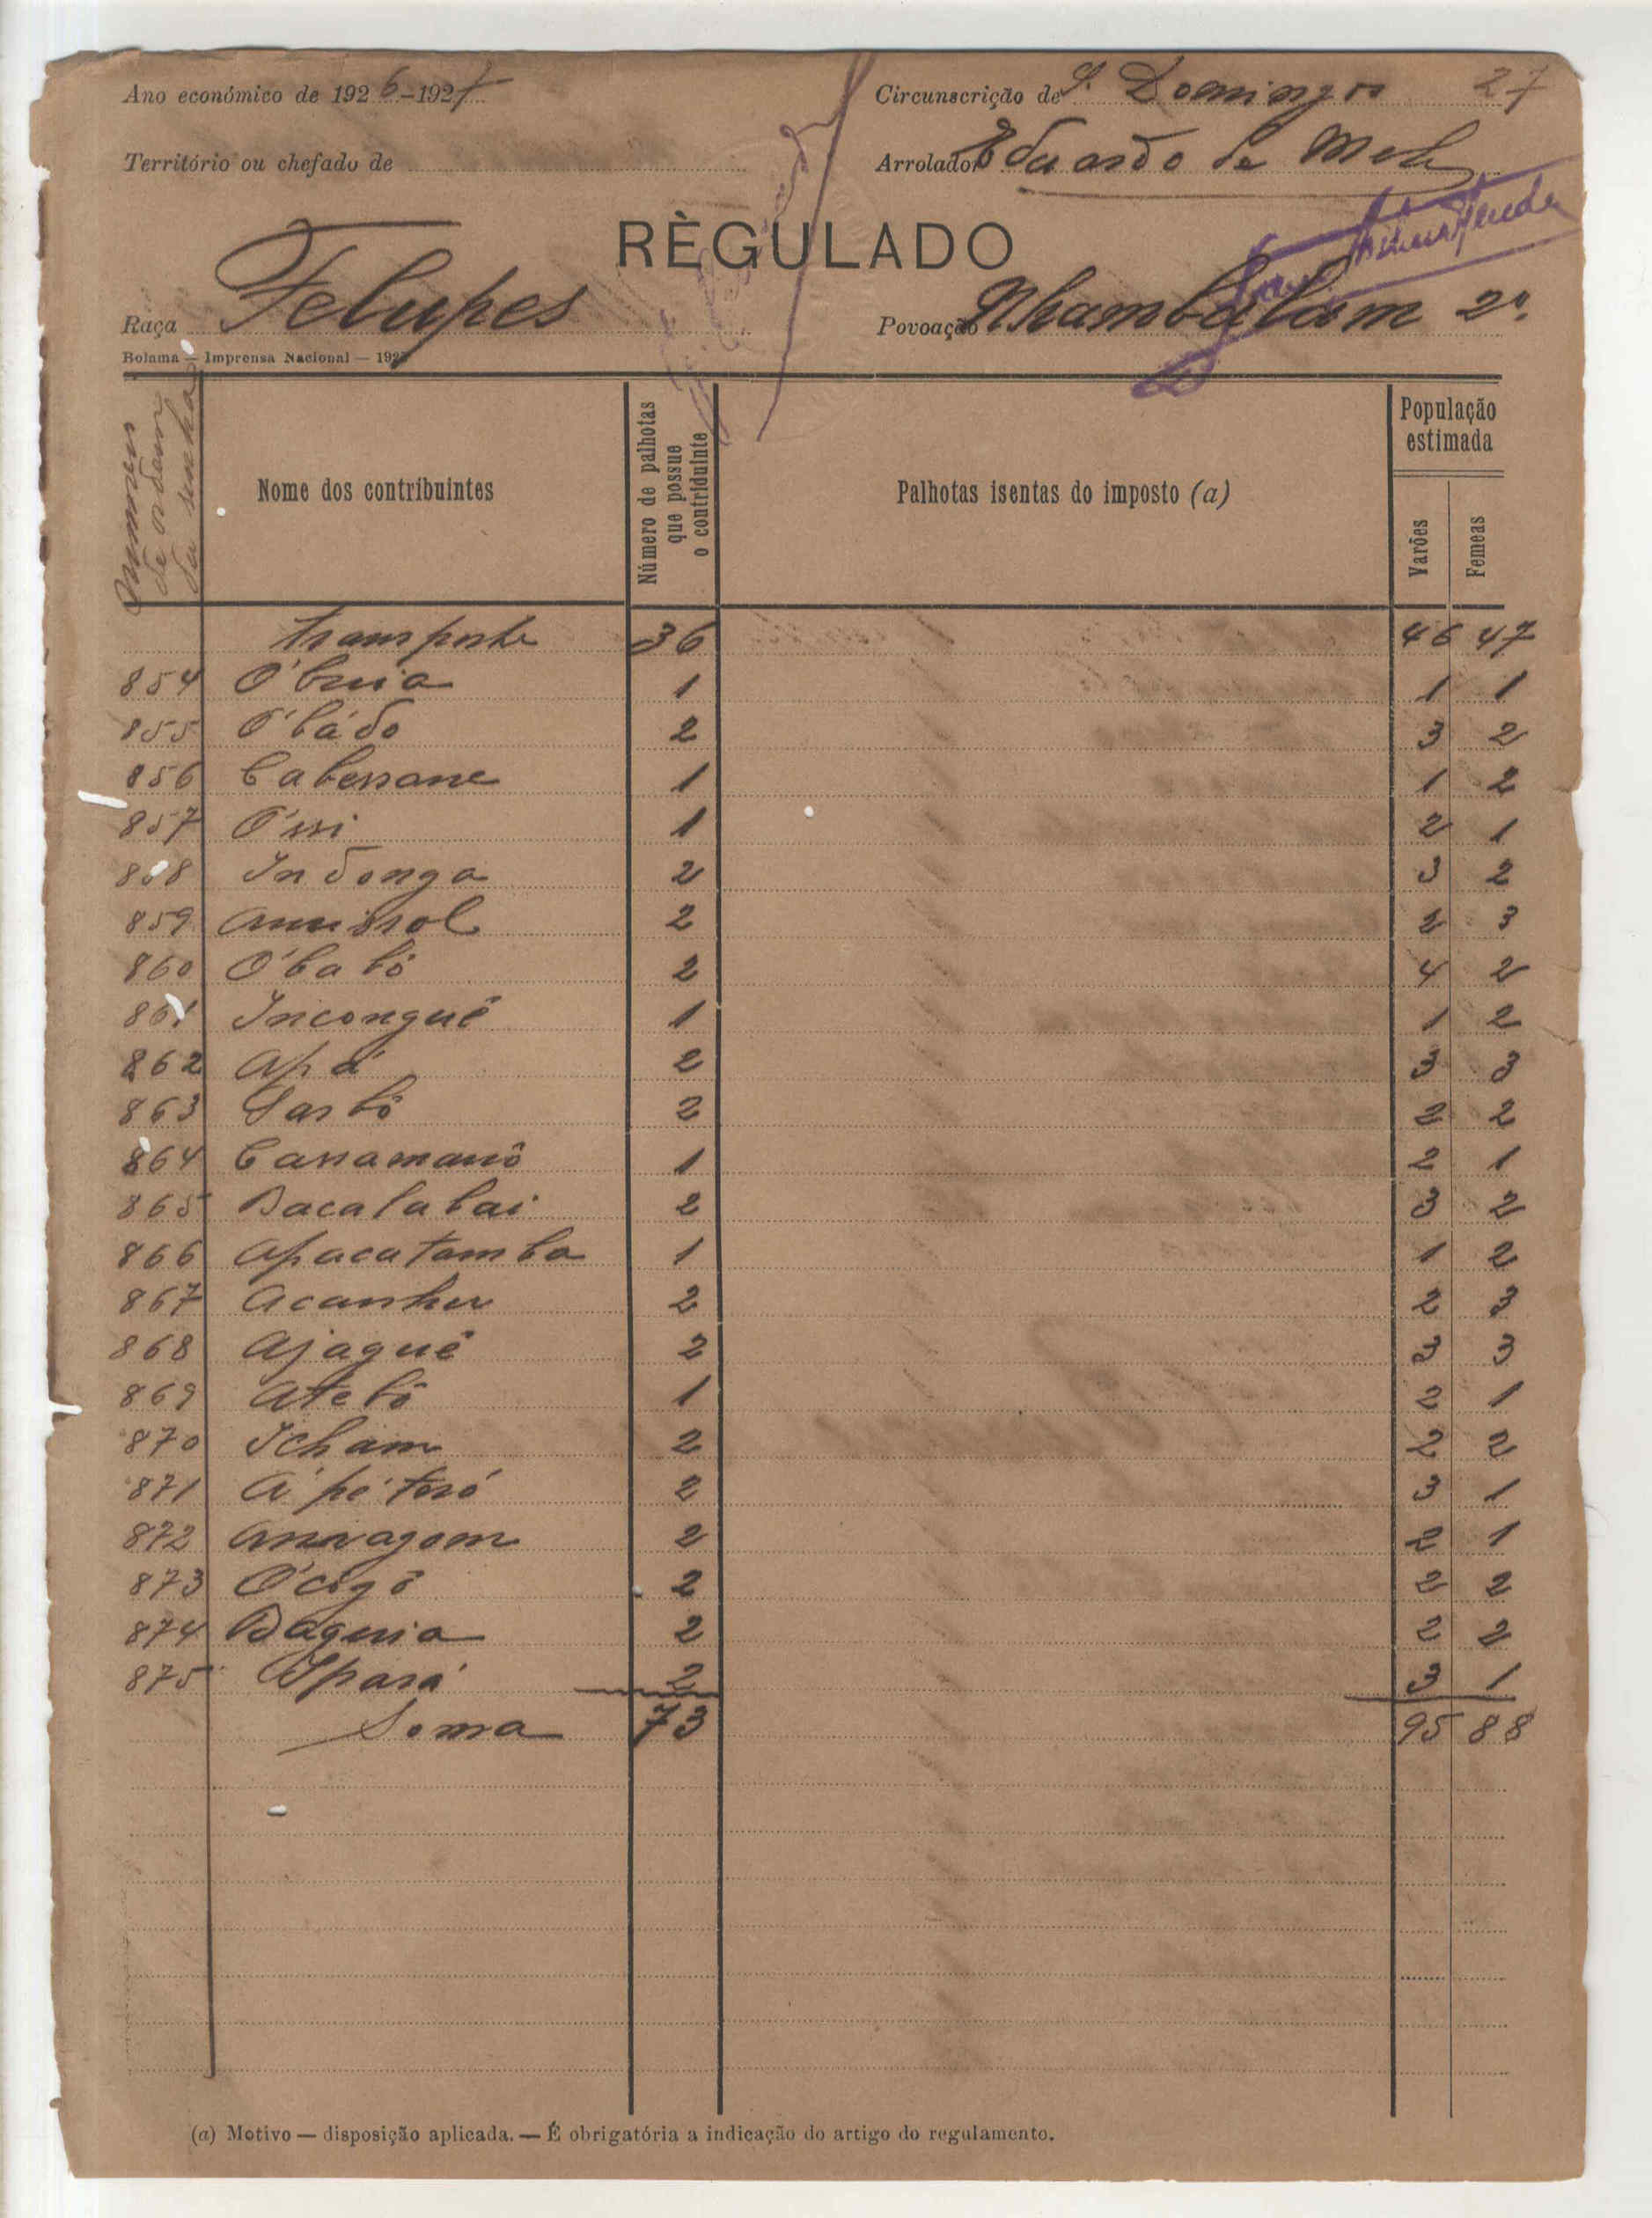 Ano económico de 1926-1927
Circunscrição de S. Domingos 27
Território ou chefado de
Arrolador Eduardo de Melo
RÈGULADO
Raça Felupes
Povoação Nhambalam 2º.
Bolama — Imprensa Nacional — 192
Numero de ordem da senha
Nome dos contribuintes
Número de palhotas que possue o contriduinte
Palhotas isentas do imposto (a)
População estimada
Varões
Femeas
Transporte 36 46 47
854 O'buia 1 1 1
855 O'bádo 2 3 2
856 Cabessane 1 1 2
857 O'ssi 1 2 1
858 Indonga 2 3 2
859 2 2 3
860 O'babô 2 4 2
861 Inconguê 1 1 2
862 Apá 2 3 3
863 Sasbô 2 2 2
864 Cassamauô 1 2 1
865 Bacalabai 2 3 2
866 Apacatamba 1 1 2
867 Acanhu 2 2 3
868 Ajaguê 2 3 3
869 Atebô 1 2 1
870 Icham 2 2 2
871 A'pétoró 2 3 1
872 2 2 1
873 O'cogô 2 2 2
874 Baguia 2 2 2
875 Ipará 2 3 1
Soma 73 95 88
(a) Motivo — disposição aplicada. — É obrigatória a indicação do artigo do regulamento.